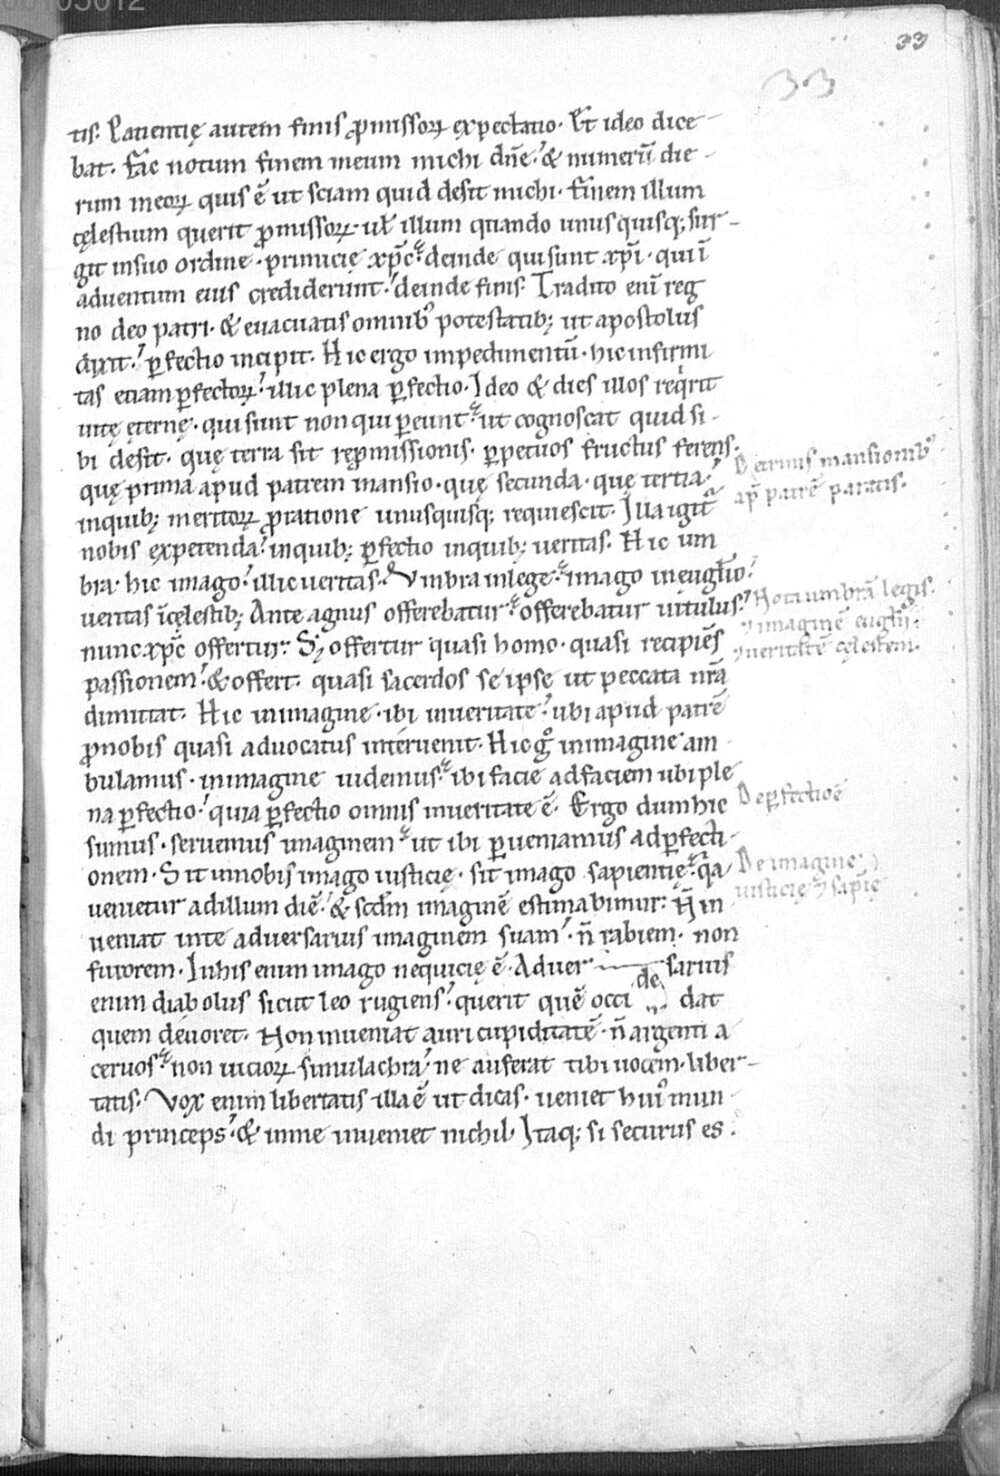 33
33
tis. Patientię autem finis ꝓmissoꝝ expectatio. Et ideo dice-
bat. Fac notum finem meum michi dn̄e. & numerū die-
rum meoꝝ quis ē ut sciam quid desit michi. Finem illum
cęlestium querit ꝓmissoꝝ. uł illum quando unusquisq; sur-
git insuo ordine. primicię xp̄c. deinde quisunt xp̄i. qui ī
aduentum eius crediderunt. deinde finis. Tradito eni̅ reg
no deo patri. & euacuatis omnib; potestatib; ut apostolus
dixit. ꝑfectio incipit. Hic ergo impedimentū. hic infirmi
tas etiam ꝑfectoꝝ. illic plena ꝑfectio. Ideo & dies illos reqͥrit
uitę ęternę. qui sunt non qui ꝑeunt. ut cognoscat quid si-
bi desit. quę terra sit reꝓmissionis. ꝑpetuos fructus ferens.
quę prima apud patrem mansio. quę secunda. quę tertia.
inquib; meritoꝝ ꝓratione unusquisq; requiescit. Illa igit̄
nobis expetenda. inquib; ꝑfectio inquib; ueritas. Hic um
bra. hic imago. illic ueritas. Vmbra inlege. imago ineuglio.
ueritas i̅cęlestib; Ante agnus offerebatur. offerebatur uitulus.
nunc xp̄c offertur. S; offertur quasi homo. quasi recipiēs
passionem. & offert. quasi sacerdos se ipse ut peccata nrā
dimittat. Hic inimagine. ibi inueritate. ubi apud patrē
ꝓnobis quasi aduocatus interuenit. Hic gͦ inimagine am
bulamus. inimagine uidemus. ibi facie adfaciem ubi ple
na ꝑfectio. quia ꝑfectio omnis inueritate ē. Ergo dum hic
sumus. seruemus imaginem ut ibi ꝑueniamus adꝑfecti-
onem. Sit innobis imago iusticię. sit imago sapientię. qͣa
uenietur adillum diē. & scdm̄ imaginē estimabimur. N̄ in
ueniat inte aduersarius imaginem suam. n̄ rabiem. non
furorem. Inhis enim imago nequicię ē. Aduer sarius
enim diabolus sicut leo rugiens. querit quē occi de dat
quem deuoret. Non inueniat auri cupiditatē. n̄ argenti a
ceruos. non uicioꝝ simulachra. ne auferat tibi uocem. liber-
tatis. Vox enim libertatis illa ē ut dicas. ueniet huiꝰ mun-
di princeps. & inme inueniet nichil. Itaq; si securus es.
De ternis mansionibꝰ
ap̄ patrē paratis.
Nota umbrā legis.
⁊ imaginē euglii.
⁊ueritatē cęlestem.
De ꝑfectiōe
De imagine
iusticię ⁊ sapię